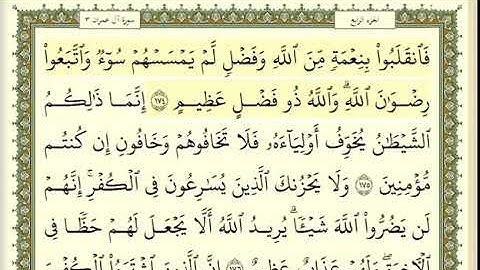 الجزء الرابع
سورة آل عمران ٣
فَٱنقَلَبُوا۟ بِنِعْمَةٍ مِّنَ ٱللَّهِ وَفَضْلٍ لَّمْ يَمْسَسْهُمْ سُوٓءٌ وَٱتَّبَعُوا۟
رِضْوَٰنَ ٱللَّهِ ۗ وَٱللَّهُ ذُو فَضْلٍ عَظِيمٍ ١٧٤ إِنَّمَا ذَٰلِكُمُ
ٱلشَّيْطَٰنُ يُخَوِّفُ أَوْلِيَآءَهُۥ فَلَا تَخَافُوهُمْ وَخَافُونِ إِن كُنتُم
مُّؤْمِنِينَ ١٧٥ وَلَا يَحْزُنكَ ٱلَّذِينَ يُسَٰرِعُونَ فِى ٱلْكُفْرِ ۚ إِنَّهُمْ
لَن يَضُرُّوا۟ ٱللَّهَ شَيْـًٔا ۗ يُرِيدُ ٱللَّهُ أَلَّا يَجْعَلَ لَهُمْ حَظًّا فِى
ٱلْءَاخِرَةِ ۖ وَلَهُمْ عَذَابٌ عَظِيمٌ ١٧٦ إِنَّ ٱلَّذِينَ ٱشْتَرَوُا۟ ٱلْكُفْرَ